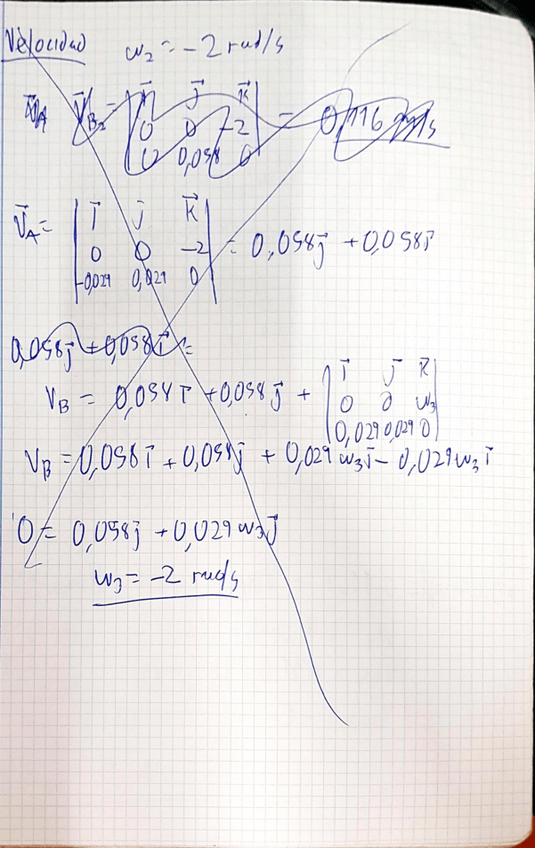 Velocidad ω₂ = -2 rad/s
V⃗B₂ = | i⃗ j⃗ k⃗ | = 0,116 m/s
0 0 -2
0 0,058 0
V⃗A = | i⃗ j⃗ k⃗ | = 0,058j⃗ + 0,058i⃗
0 0 -2
-0,029 0,029 0
0,058j⃗ + 0,058i⃗ =
VB = 0,058i⃗ + 0,058j⃗ + | i⃗ j⃗ k⃗ |
0 0 ω₃
0,029 0,029 0
VB = 0,058i⃗ + 0,058j⃗ + 0,029ω₃j⃗ - 0,029ω₃i⃗
0 = 0,058j⃗ + 0,029ω₃j⃗
ω₃ = -2 rad/s